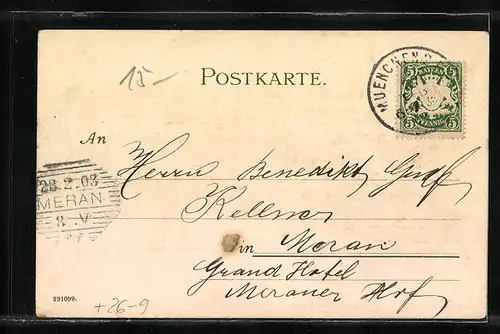 15 –
POSTKARTE.
MUENCHEN
BAYERN
5 5
5 PFENNIG 5
An
Herrn Benedikt Graf
Kellner
in Meran
Grand Hotel
Meraner Hof
28.2.03
MERAN
8. V
291099.
+26-9